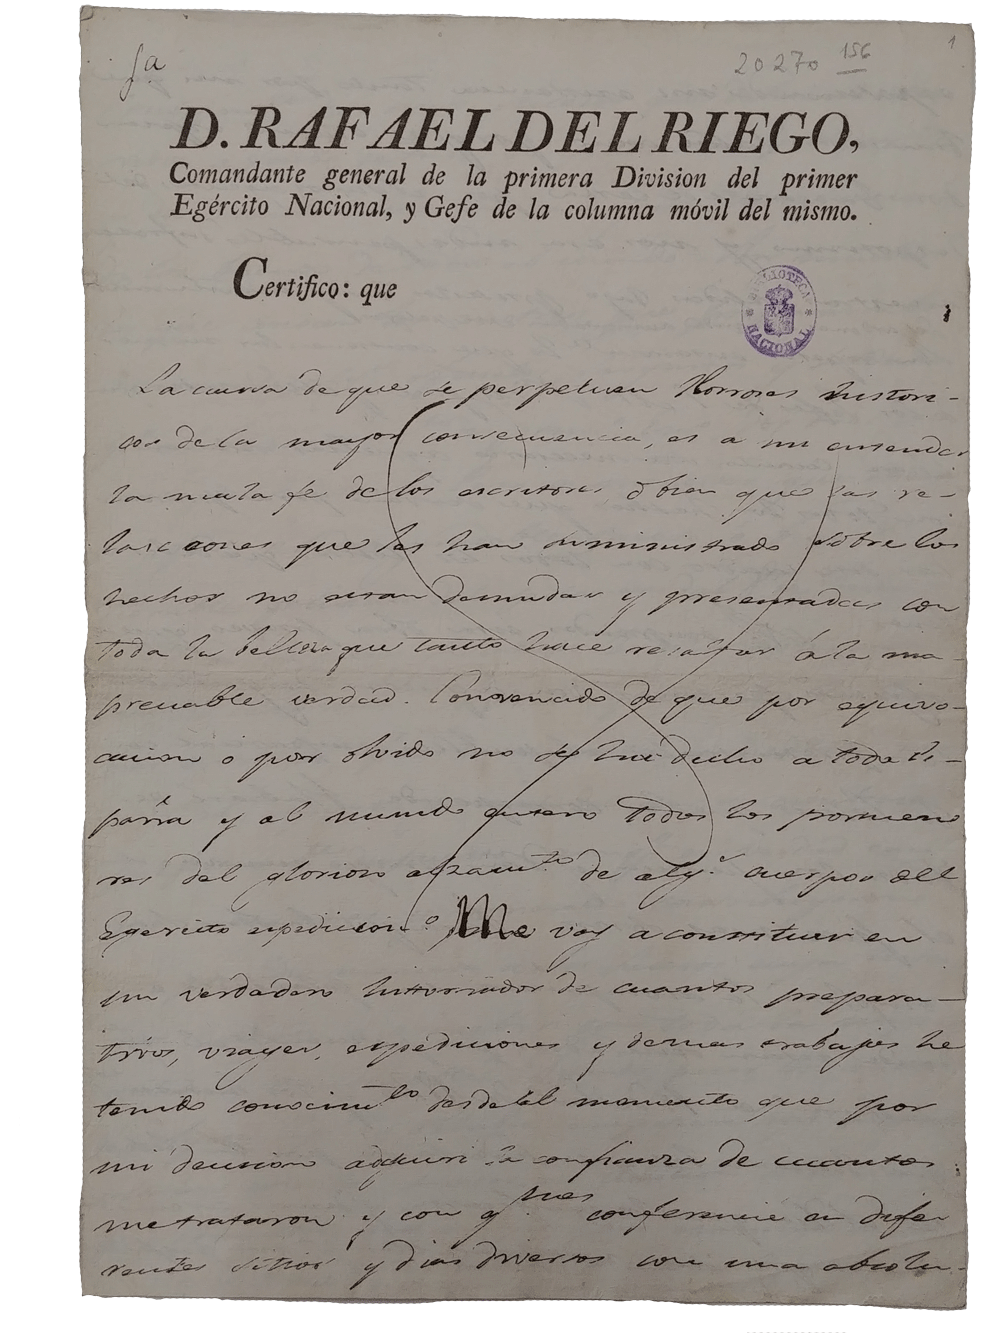 fa
20270 156
1
D. RAFAEL DEL RIEGO,
Comandante general de la primera Division del primer
Egército Nacional, y Gefe de la columna móvil del mismo.
Certifico: que
BIBLIOTECA NACIONAL
La causa de que se perpetuen Horrores histori-
cos de la mayor consecuencia, es a mi entender
la mala fe de los escritores obien que las re-
laciones que les han suministrado sobre los
hechos no sean desnudas y presentadas con
toda la belleza que tanto hace resaltar á la ina-
preciable verdad. Convencido de que por equivo-
cacion o por olvido no se ha dicho a toda Es-
paña y al mundo entero todos los pormeno
res del glorioso alzam.to de alg.s cuerpos del
Egercito expedicion.o Me voy a constituir en
un verdadero historiador de cuantos prepara-
tivos, viages, espediciones y demas trabajos he
tenido conocim.to desde el momento que por
mi decision adquiri la confianza de cuantos
me trataron y con q.nes conferencié en dife
rentes sitios y dias diversos con una absolu-